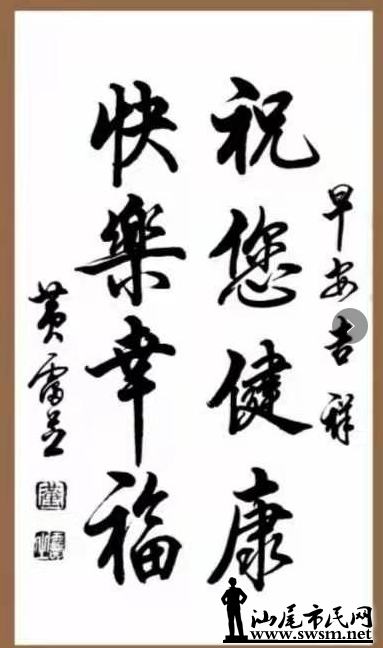 早安吉祥
祝您健康
快樂幸福
黄雷
汕尾市民网
www.swsm.net